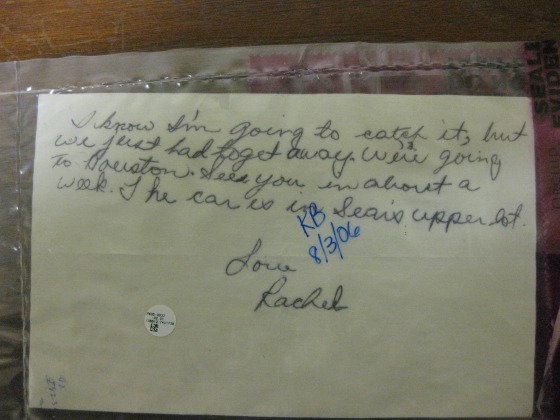 I know I'm going to catch it, but
we just had to get away. We're going
to Houston. See you in about a
week. The car is in Sear's upper lot.
KB
8/3/06
Love
Rachel
SEALE